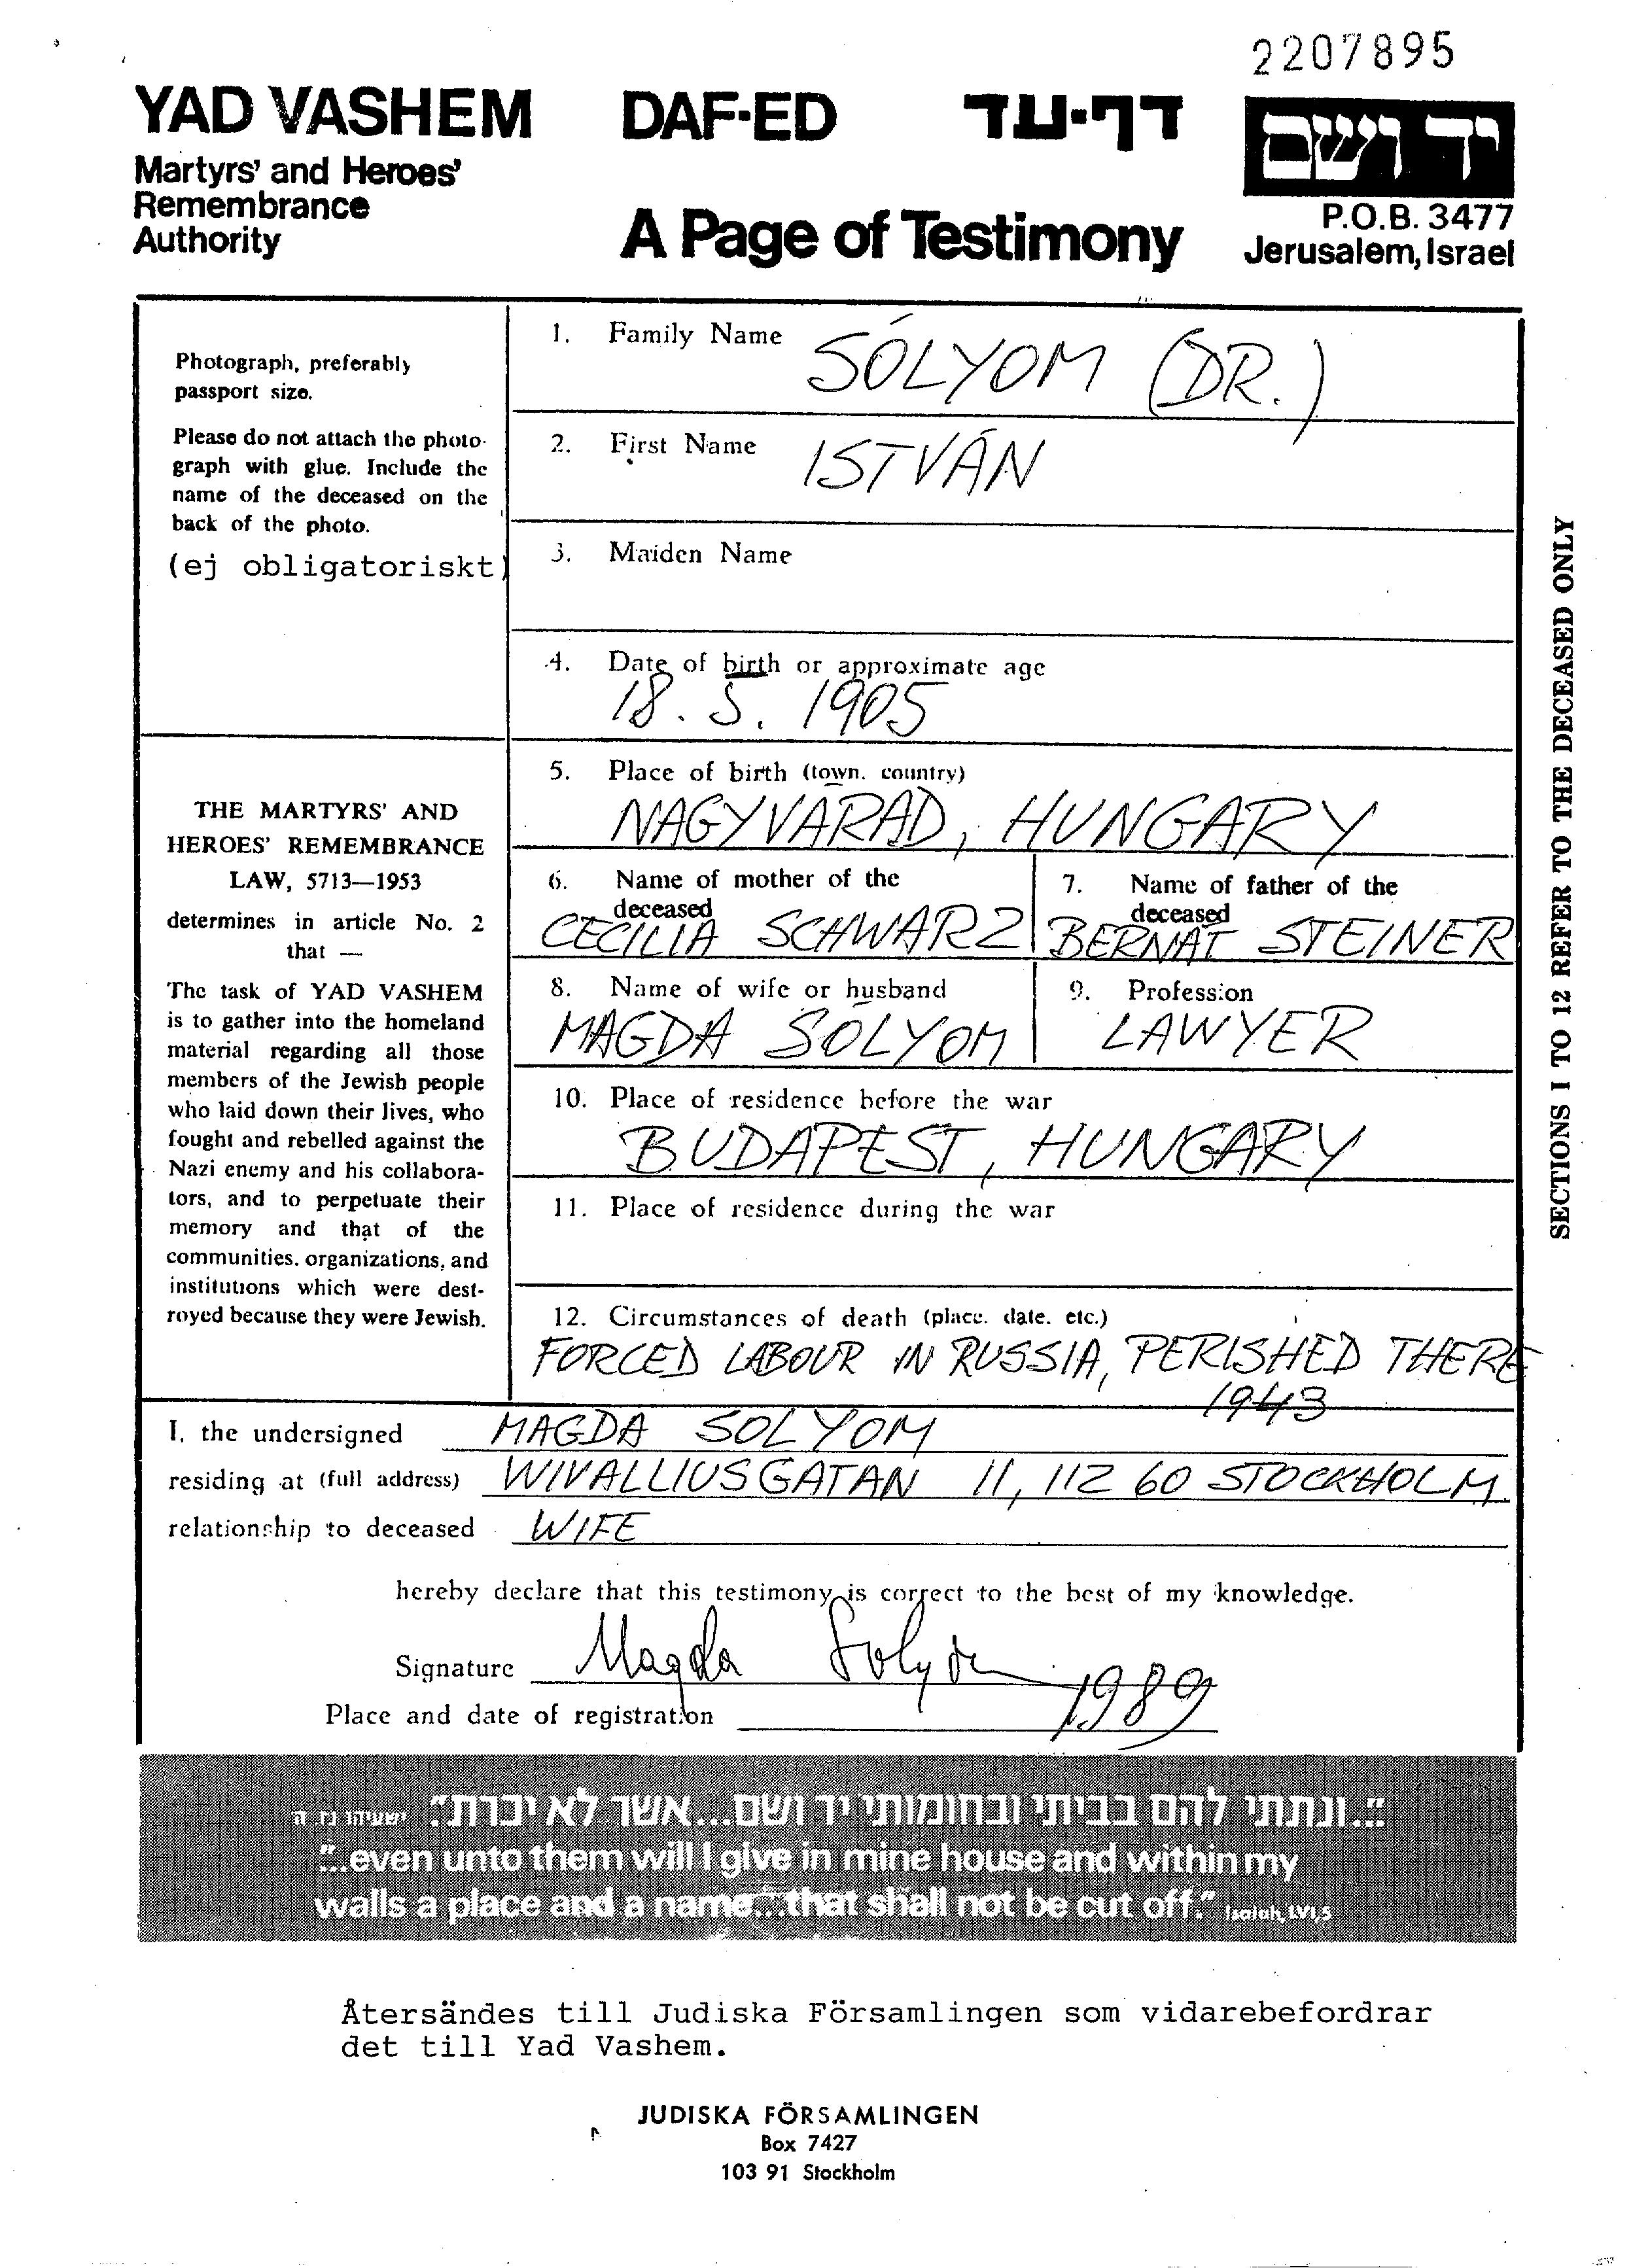 2207895
YAD VASHEM DAF-ED דף-עד יד ושם
Martyrs' and Heroes'
Remembrance
Authority
A Page of Testimony
P.O.B. 3477
Jerusalem, Israel
Photograph, preferably
passport size.
Please do not attach the photo-
graph with glue. Include the
name of the deceased on the
back of the photo.
(ej obligatoriskt)
THE MARTYRS' AND
HEROES' REMEMBRANCE
LAW, 5713—1953
determines in article No. 2
that —
The task of YAD VASHEM
is to gather into the homeland
material regarding all those
members of the Jewish people
who laid down their lives, who
fought and rebelled against the
Nazi enemy and his collabora-
tors, and to perpetuate their
memory and that of the
communities, organizations, and
institutions which were dest-
royed because they were Jewish.
1. Family Name SÓLYOM (DR.)
2. First Name ISTVÁN
3. Maiden Name
4. Date of birth or approximate age
18. 5. 1905
5. Place of birth (town, country)
NAGYVÁRAD, HUNGARY
6. Name of mother of the
deceased
CECILIA SCHWARZ
7. Name of father of the
deceased
BERNÁT STEINER
8. Name of wife or husband
MAGDA SÓLYOM
9. Profession
LAWYER
10. Place of residence before the war
BUDAPEST, HUNGARY
11. Place of residence during the war
12. Circumstances of death (place, date, etc.)
FORCED LABOUR IN RUSSIA, PERISHED THERE
1943
SECTIONS 1 TO 12 REFER TO THE DECEASED ONLY
I, the undersigned MAGDA SOLYOM
residing at (full address) WIVALLIUSGATAN 11, 112 60 STOCKHOLM
relationship to deceased WIFE
hereby declare that this testimony is correct to the best of my knowledge.
Signature Magda Solyom
Place and date of registration 1989
"...ונתתי להם בביתי ובחומותי יד ושם...אשר לא יכרת" ישעיהו נו ה
"...even unto them will I give in mine house and within my
walls a place and a name...that shall not be cut off." Isaiah, LVI,5
Återsändes till Judiska Församlingen som vidarebefordrar
det till Yad Vashem.
JUDISKA FÖRSAMLINGEN
Box 7427
103 91 Stockholm